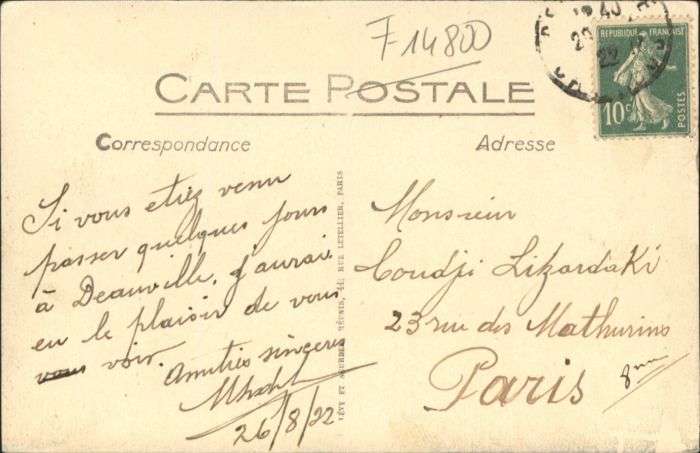 F-14800
RÉPUBLIQUE FRANÇAISE
10c
POSTES
22
CARTE POSTALE
Correspondance
Adresse
Si vous étiez venu
passer quelques jours
à Deauville, j'aurai
eu le plaisir de vous
vous voir.
Amitiés sincères
26/8/22
LÉVY ET NEURDEIN RÉUNIS, 44, RUE LETELLIER, PARIS
Monsieur
Coudji Lizardaki
23 rue des Mathurins
Paris
8me